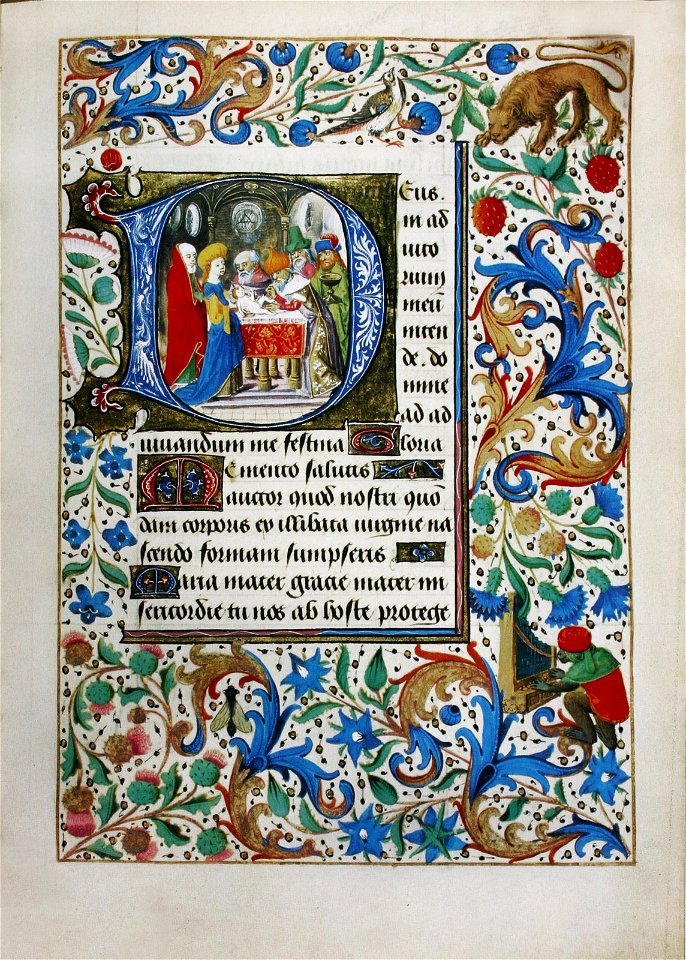 Deus.
in ad
iuto
rium
meū
inten
de. do
mine
ad ad
iuuandum me festina Gloria
Memento salutis
auctor quod nostri quon
dam corporis ex illibata uirgine na
scendo formam sumpseris
Maria mater gracie mater mi
sericordie tu nos ab hoste protege